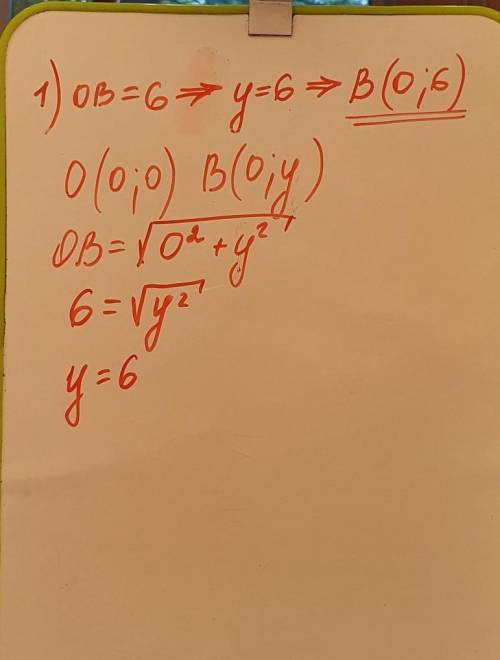 1) OB = 6 ⇒ y = 6 ⇒ B(0;6)
O(0;0) B(0;y)
OB = √(0² + y²)
6 = √y²
y = 6